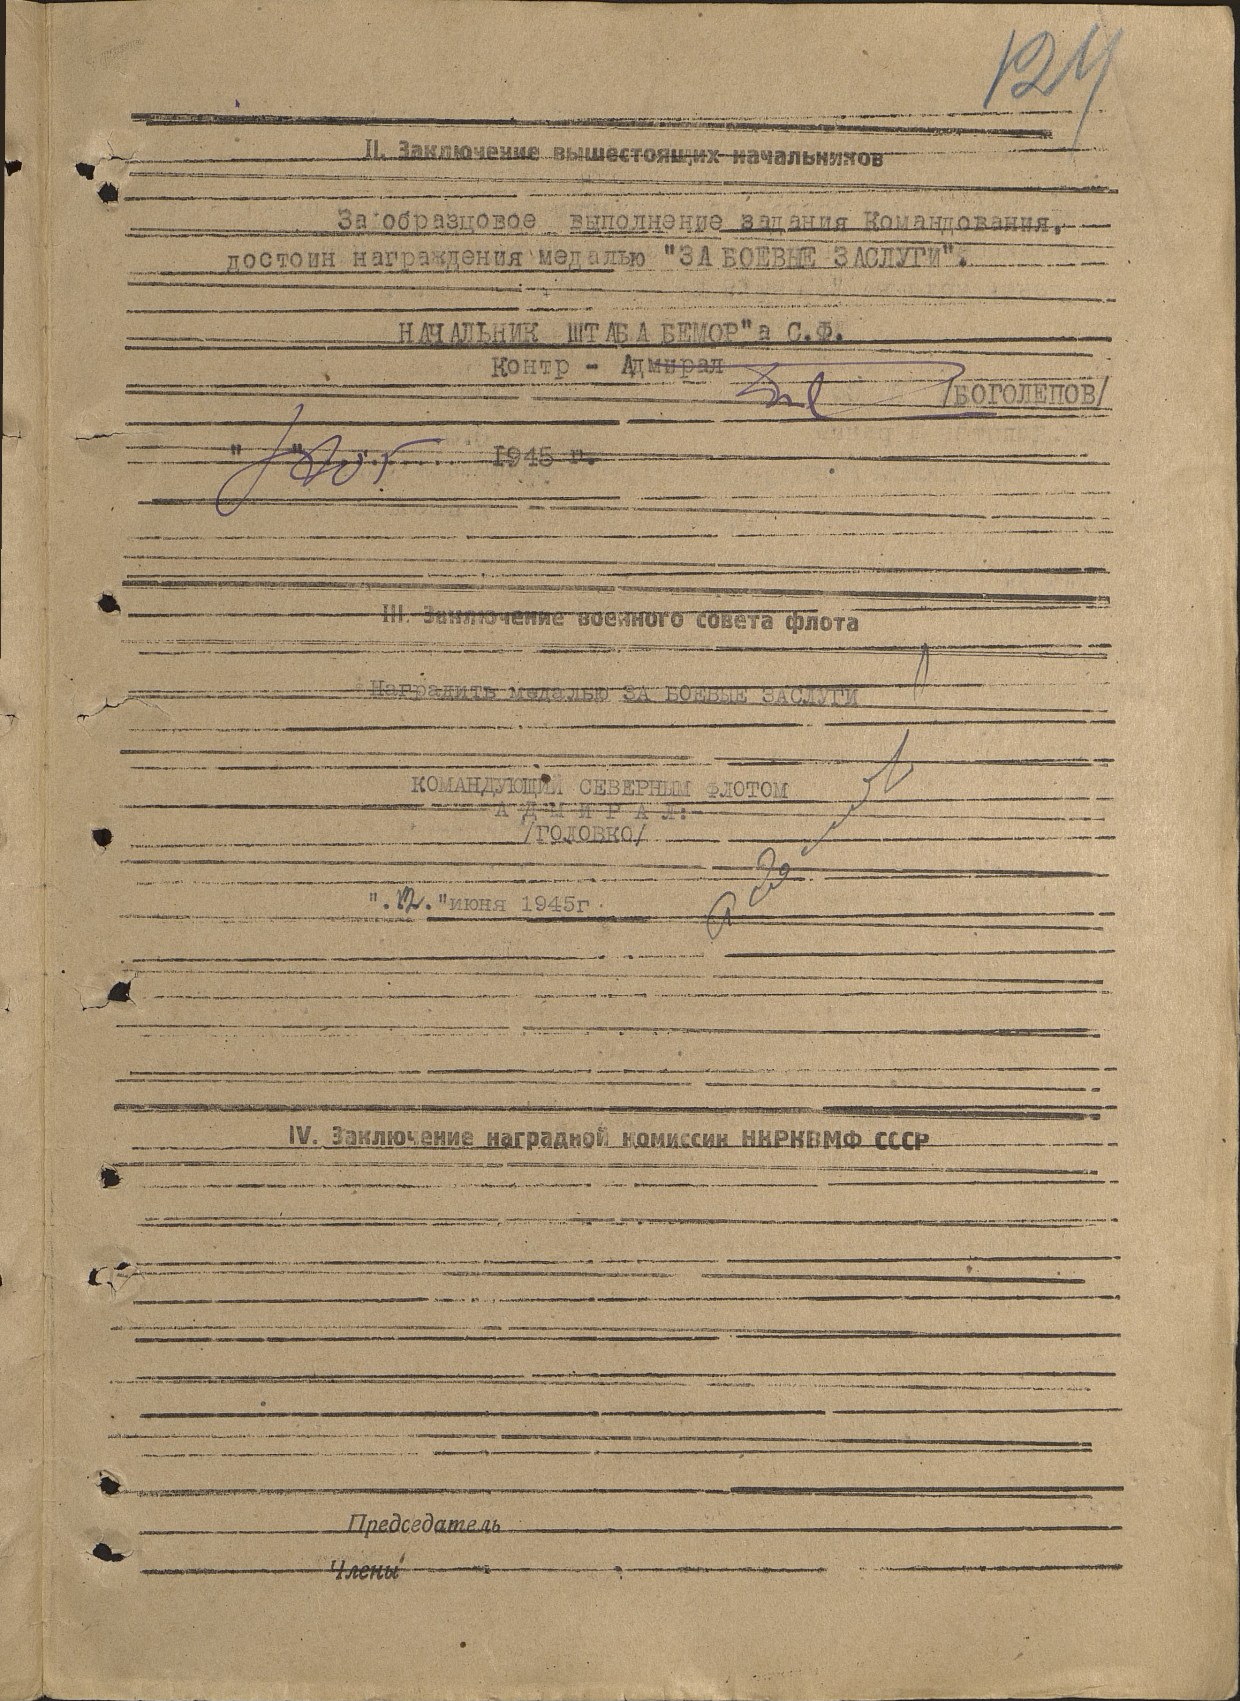 124
II. Заключение вышестоящих начальников
За образцовое выполнение задания Командования,
достоин награждения медалью "ЗА БОЕВЫЕ ЗАСЛУГИ".
НАЧАЛЬНИК ШТАБА БЕМОР"а С.Ф.
Контр - Адмирал
/БОГОЛЕПОВ/
" " 1945 г.
III. Заключение военного совета флота
Наградить медалью ЗА БОЕВЫЕ ЗАСЛУГИ
КОМАНДУЮЩИЙ СЕВЕРНЫМ ФЛОТОМ
А Д М И Р А Л:
/ГОЛОВКО/
".12."июня 1945г.
IV. Заключение наградной комиссии НКРКВМФ СССР
Председатель
Члены